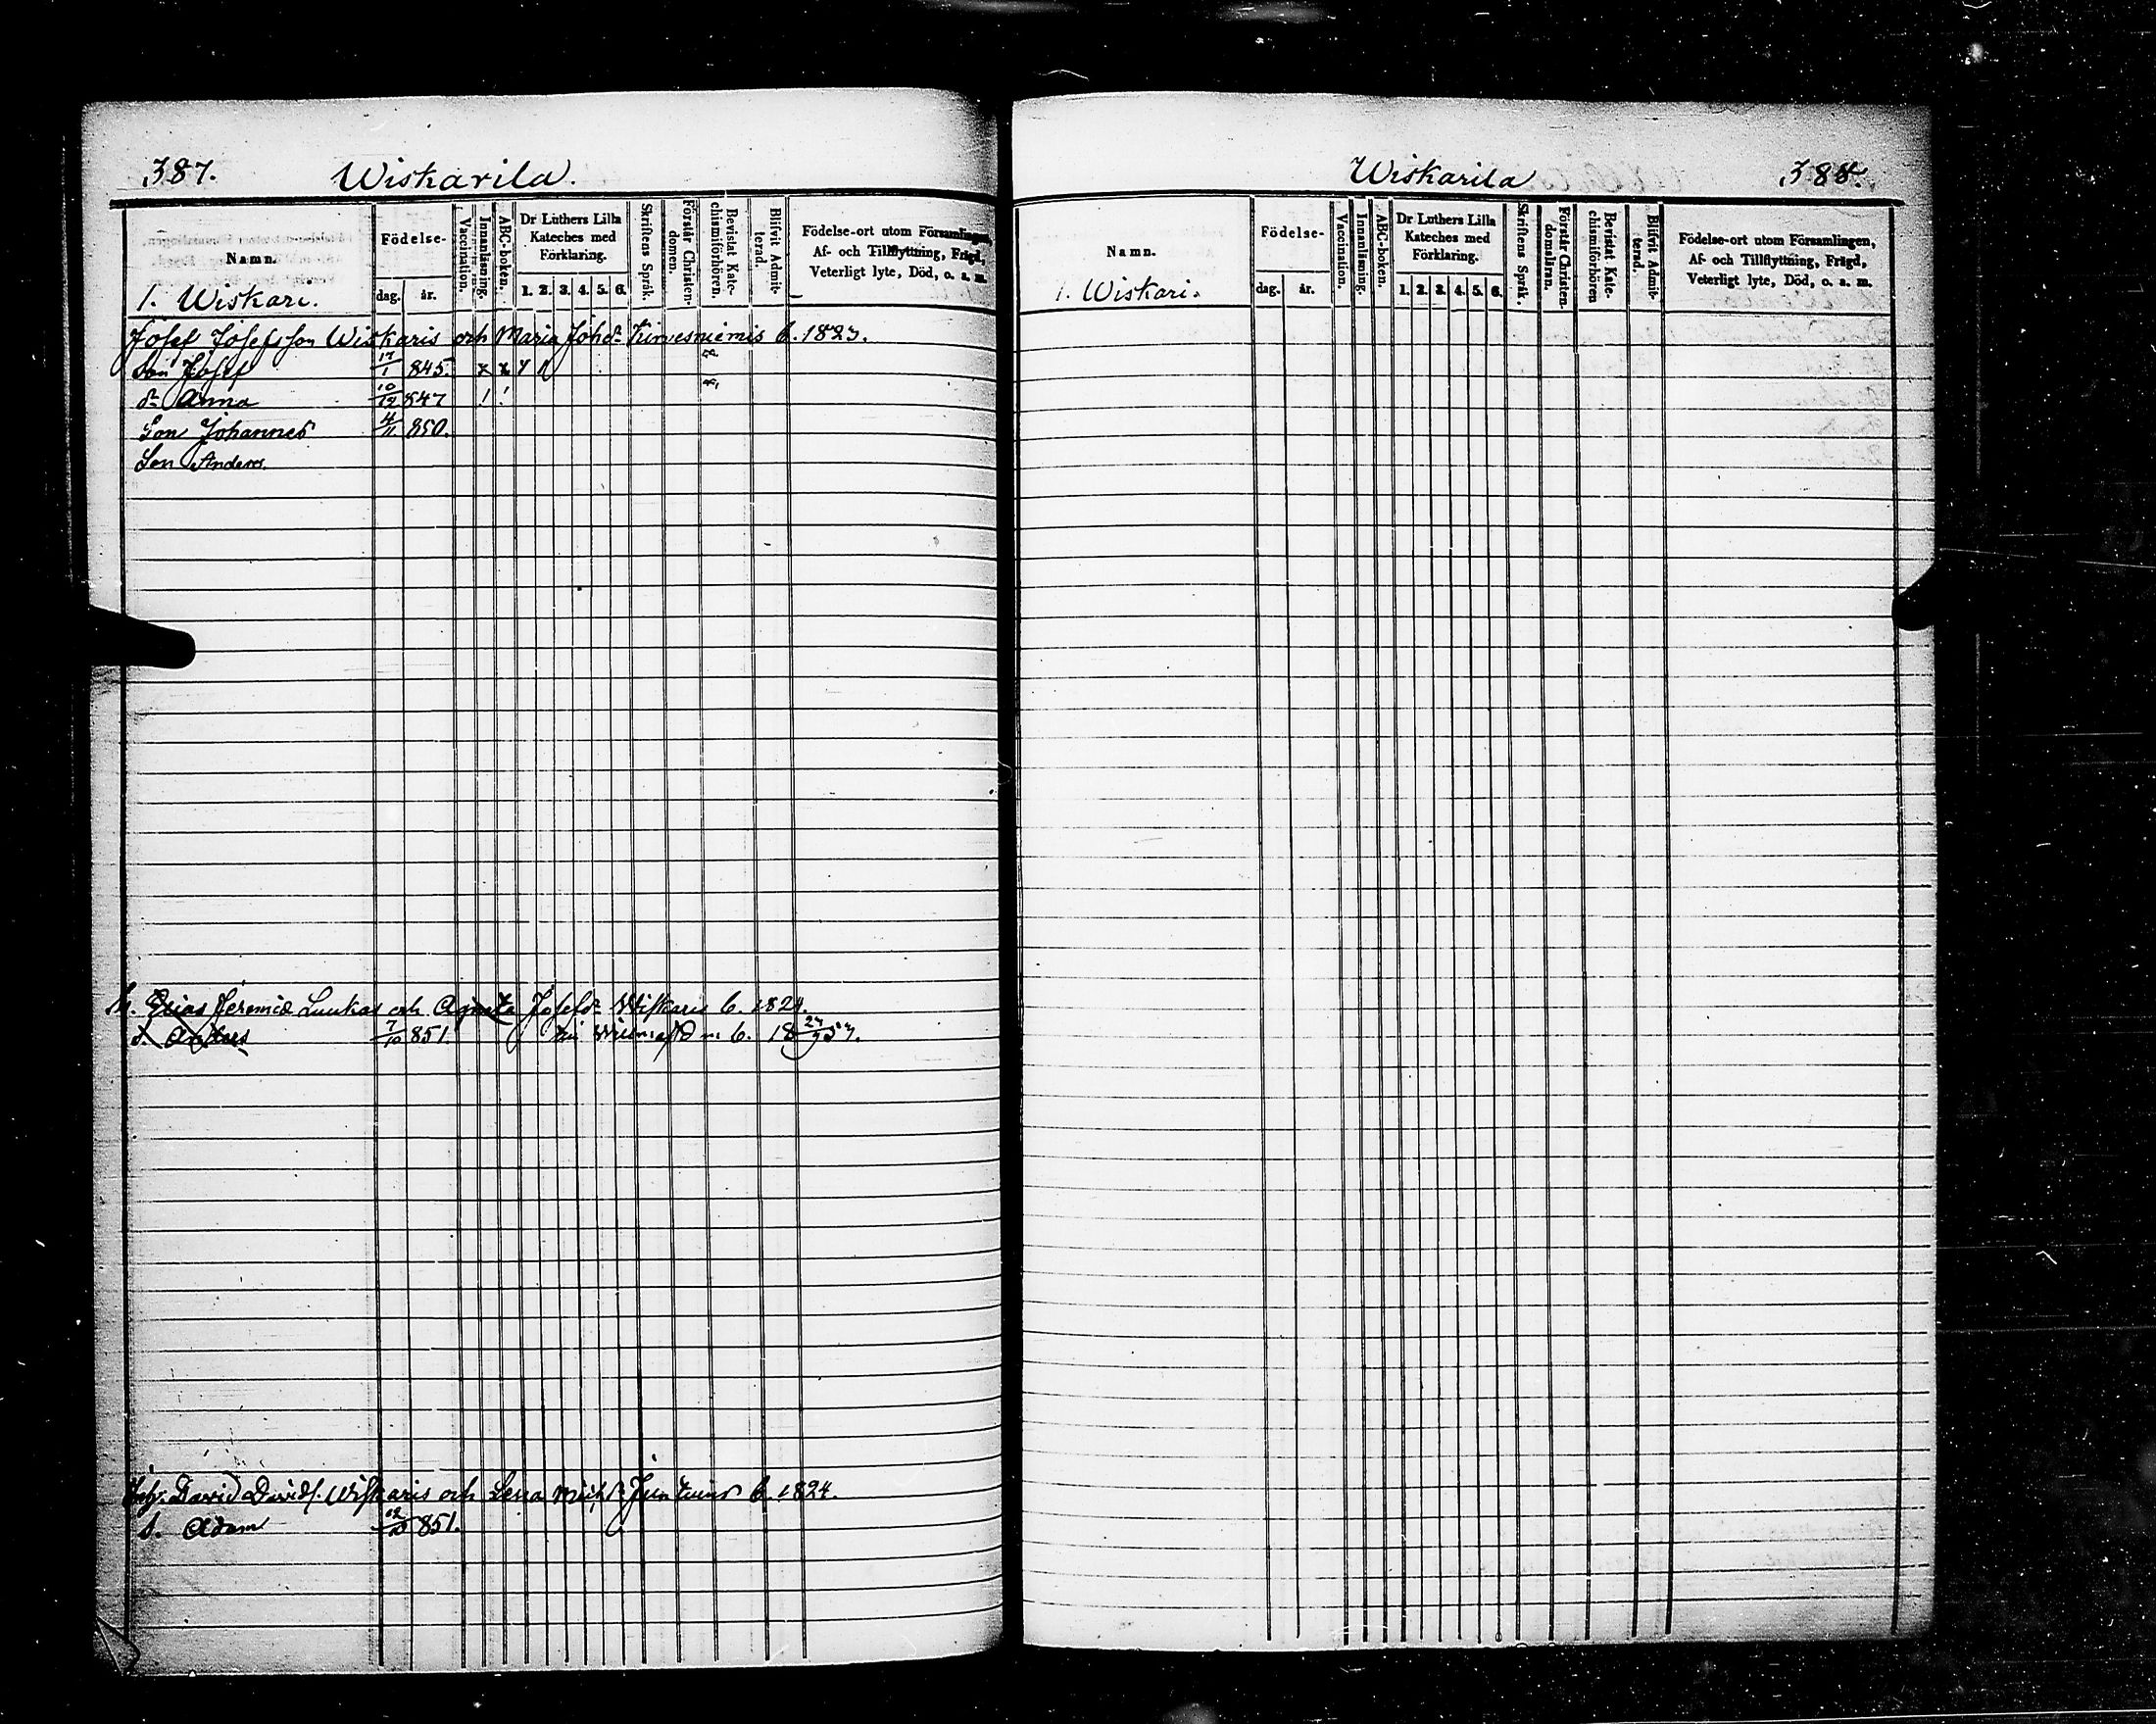 387. Wiskarila.
Namn.
1. Wiskari.
Födelse-
dag. år.
Vaccination.
Innanläsning.
ABC-boken.
Dr Luthers Lilla
Kateches med
Förklaring.
1. 2. 3. 4. 5. 6.
Skriftens Språk.
Förstår Christen-
domen.
Bevistat Kate-
chismiförhören.
Blifvit Admit-
terad.
Födelse-ort utom Församlingen,
Af- och Tillflyttning, Frägd,
Veterligt lyte, Död, o. s. m.
Josef Josefsson Wiskaris och Maria Johdr Kirvesniemis b. 1823.
Son Josef 17/1 845. x x
dr Anna 10/12 847
Son Johannes 4/11 850.
Son Anders.
Elias Jeremiæ Luukas och Agneta Josefdr Wiskaris b. 1824.
s. Anders 7/10 851.
David Davids. Wiskaris och Lena b. 1824.
s. Adam 851.
Wiskarila 388.
Namn.
1. Wiskari.
Födelse-
dag. år.
Vaccination.
Innanläsning.
ABC-boken.
Dr Luthers Lilla
Kateches med
Förklaring.
1. 2. 3. 4. 5. 6.
Skriftens Språk.
Förstår Christen-
domsläran.
Bevistat Kate-
chismiförhören
Blifvit Admit-
terad.
Födelse-ort utom Församlingen,
Af- och Tillflyttning, Frägd,
Veterligt lyte, Död, o. s. m.